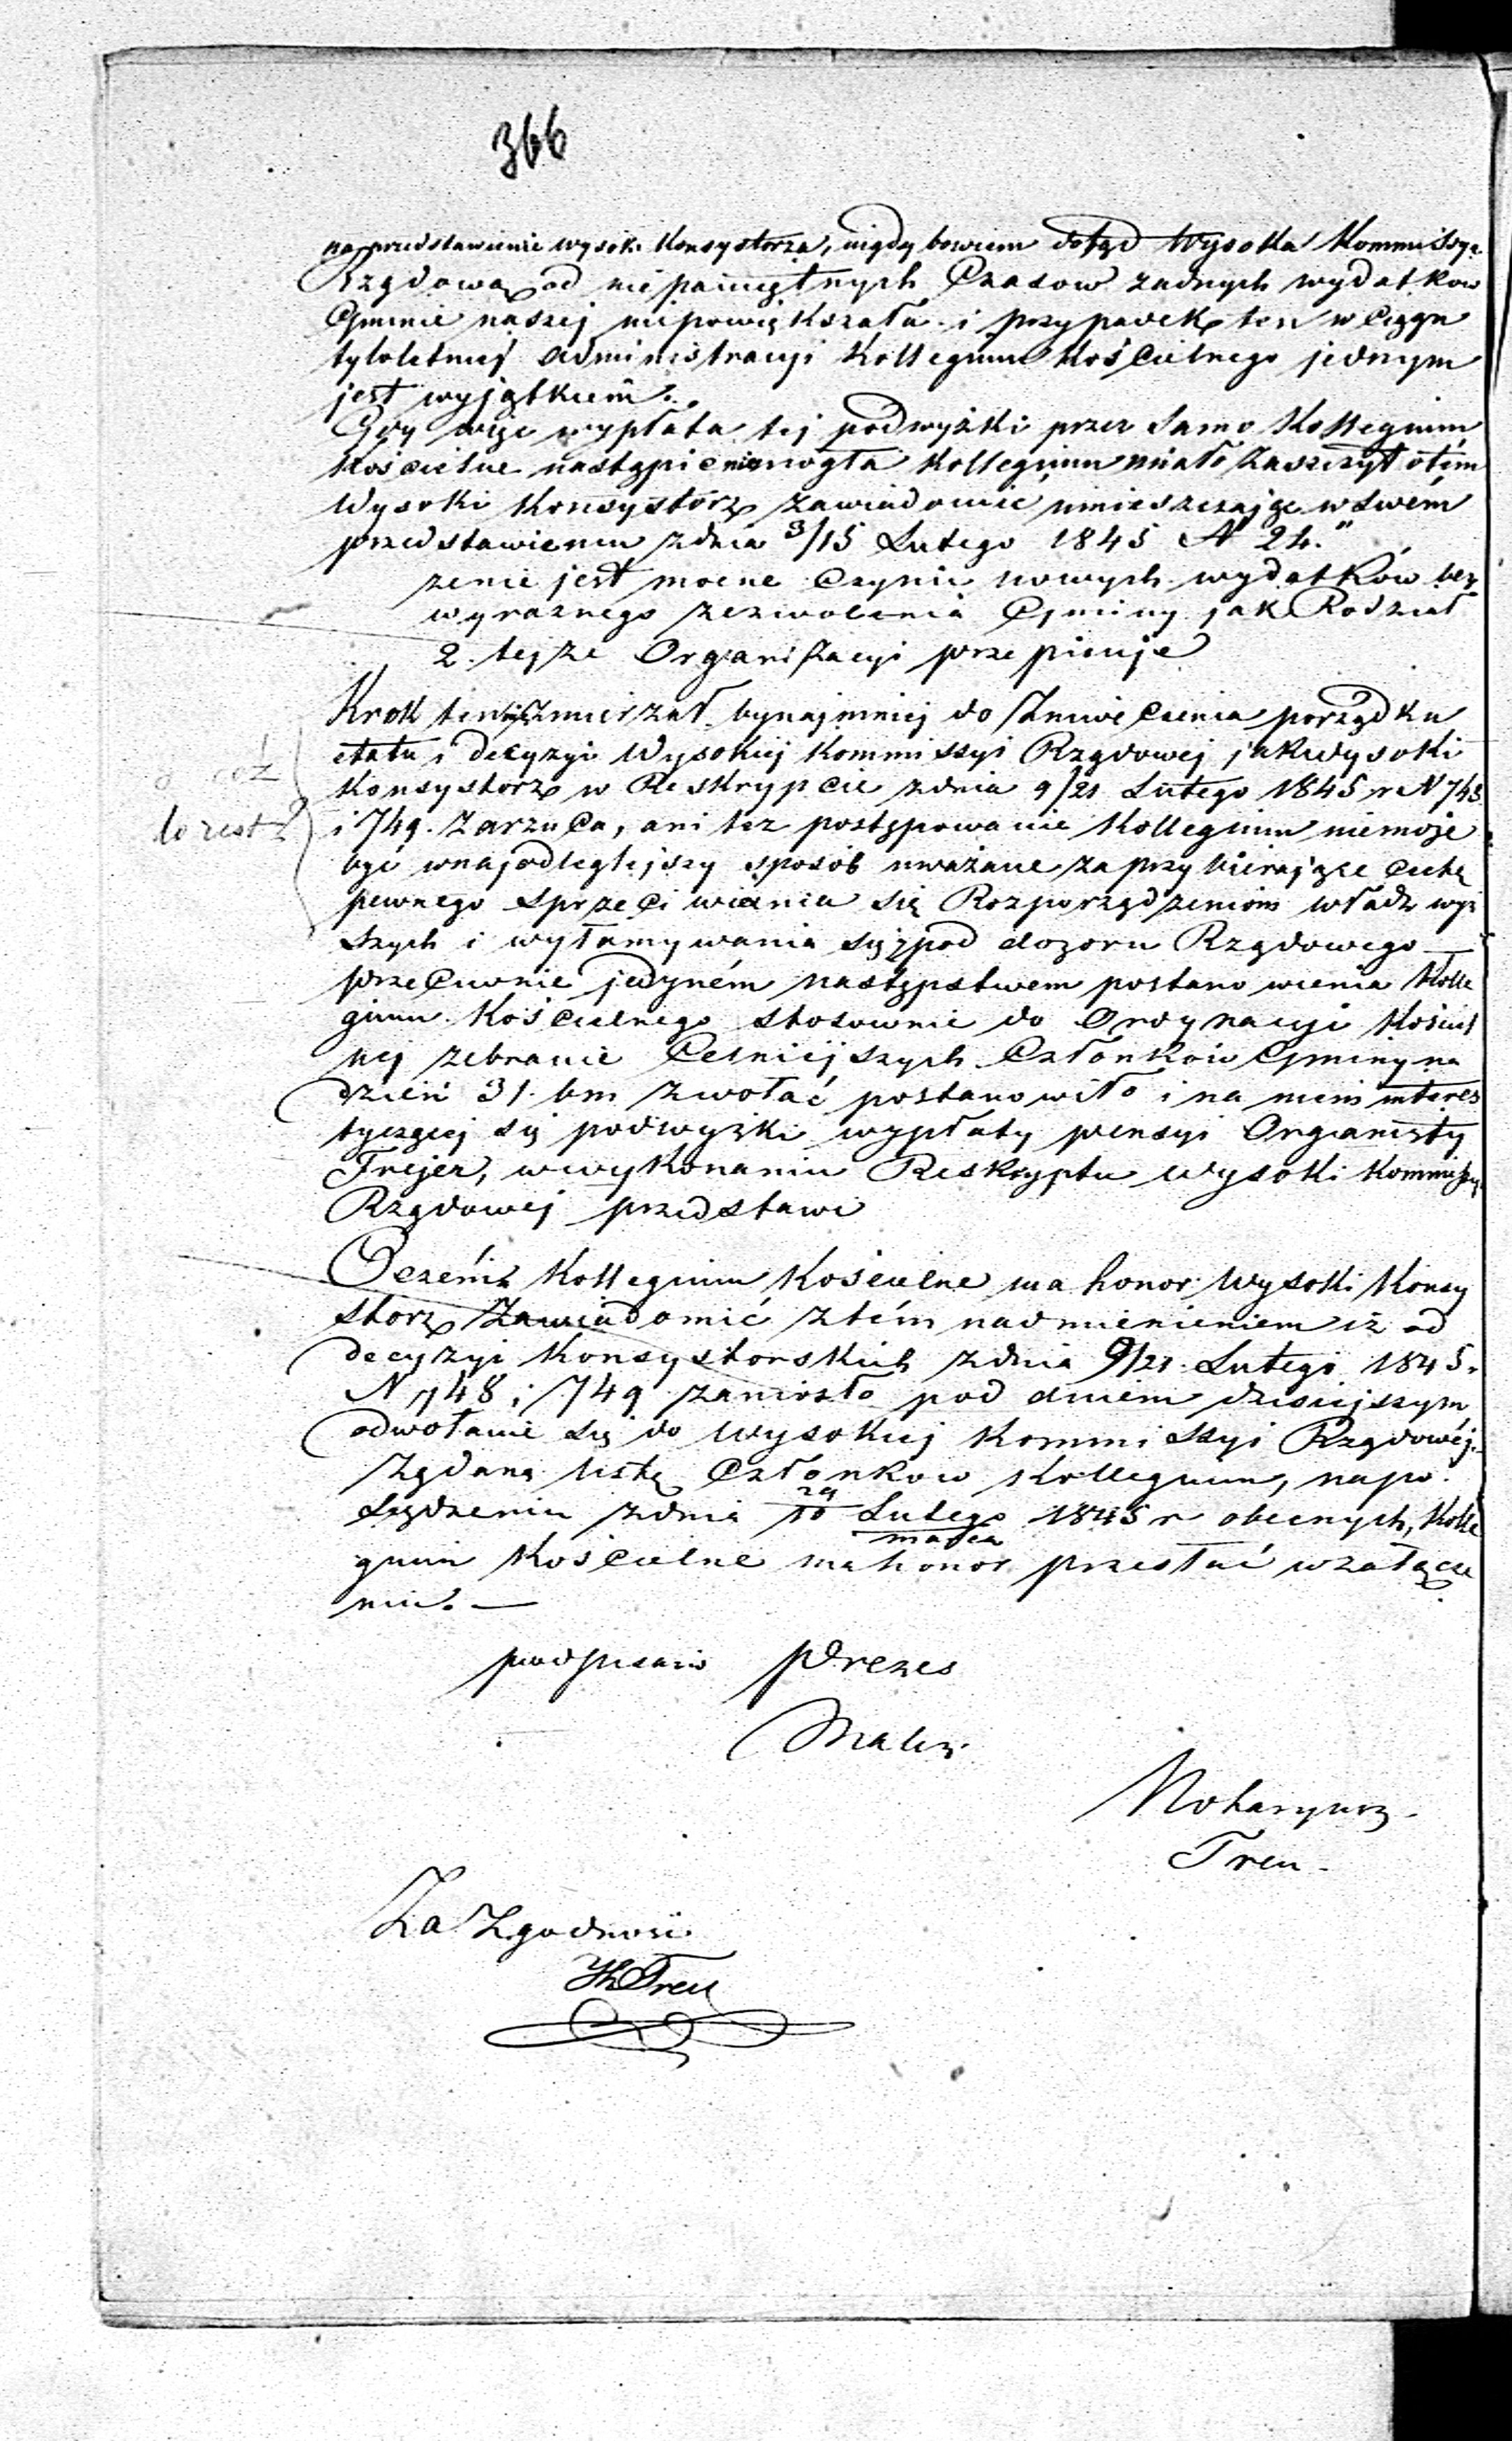 366
na przedstawienie wysok. Konsystorza, nigdy bowiem dotąd Wysoka Kommissya
Rządowa od niepamiętnych Czasow zadnych wydatkow
Gminie naszej niepowiększała i przypadek ten w Ciągu
tyloletniej administracyi Kollegium Kościelnego jednym
jest wyjątkiem.
Gdy więc wypłata tej podwyżki przez samo Kollegium
Kościelne nastąpić niemogła Kollegium miało zaszczyt otém
Wysoki Konsystórz zawiadomić umieszczając w swém
przedstawieniu zdnia 3/15 Lutego 1845 N 24."
zenie jest mocne Czynić nowych wydatków bez
wyraznego zezwolenia Gminy jak Rodział
2. tejze Organizacyi przepisuje
Krok ten niezmierzał bynajmniej do Zniweczenia porządku
etatu i decyzyi Wysokiej Kommissyi Rządowej jak wysoki
Konsystorz w Reskrypcie zdnia 9/21 Lutego 1845 r N 748
i 749. Zarzuca, ani tez postępowanie Kollegium niemoże
być wnajodleglejszy sposób uważane za przybierające Cechę
pewnego sprzeciwienia się Rozporządzeniom władz wyż
szych i wyłamywania się zpod dozoru Rządowego —
przeciwnie jedyném następstwem postanowienia Kolle
gium Kościelnego stosownie do Ordynacyi Kościel
nej zebranie Celniejszych Członków Gminy na
dzień 31. bm zwołać postanowiło i na niem interes
tyczącej się podwyżki wypłaty pensyi Organisty
Frejer, wwykonaniu Reskryptu Wysoki Kommissyi
Rządowej przedstawi
cóż
to jest?
O czémś Kollegium Kościelne ma honor Wysoki Konsy
storz Zawiadomić ztém nadmienieniem iż od
decyzyi Konsystorskich zdnia 9/21 Lutego 1845 r
N 748 i 749 zaniosło pod dniem dzisiejszym
odwołanie się do Wysokiej Kommissyi Rządowéj.
Żądaną listę Członkow Kollegium, napo
siedzeniu zdnia 10 Lutego 1845 r obecnych, Kolle
marca
gium Kościelne ma honor przesłać wzałącze
niu. —
podpisano Prezes
Malcz
Notaryusz
Treu
Za Zgodnosć
Th Treu